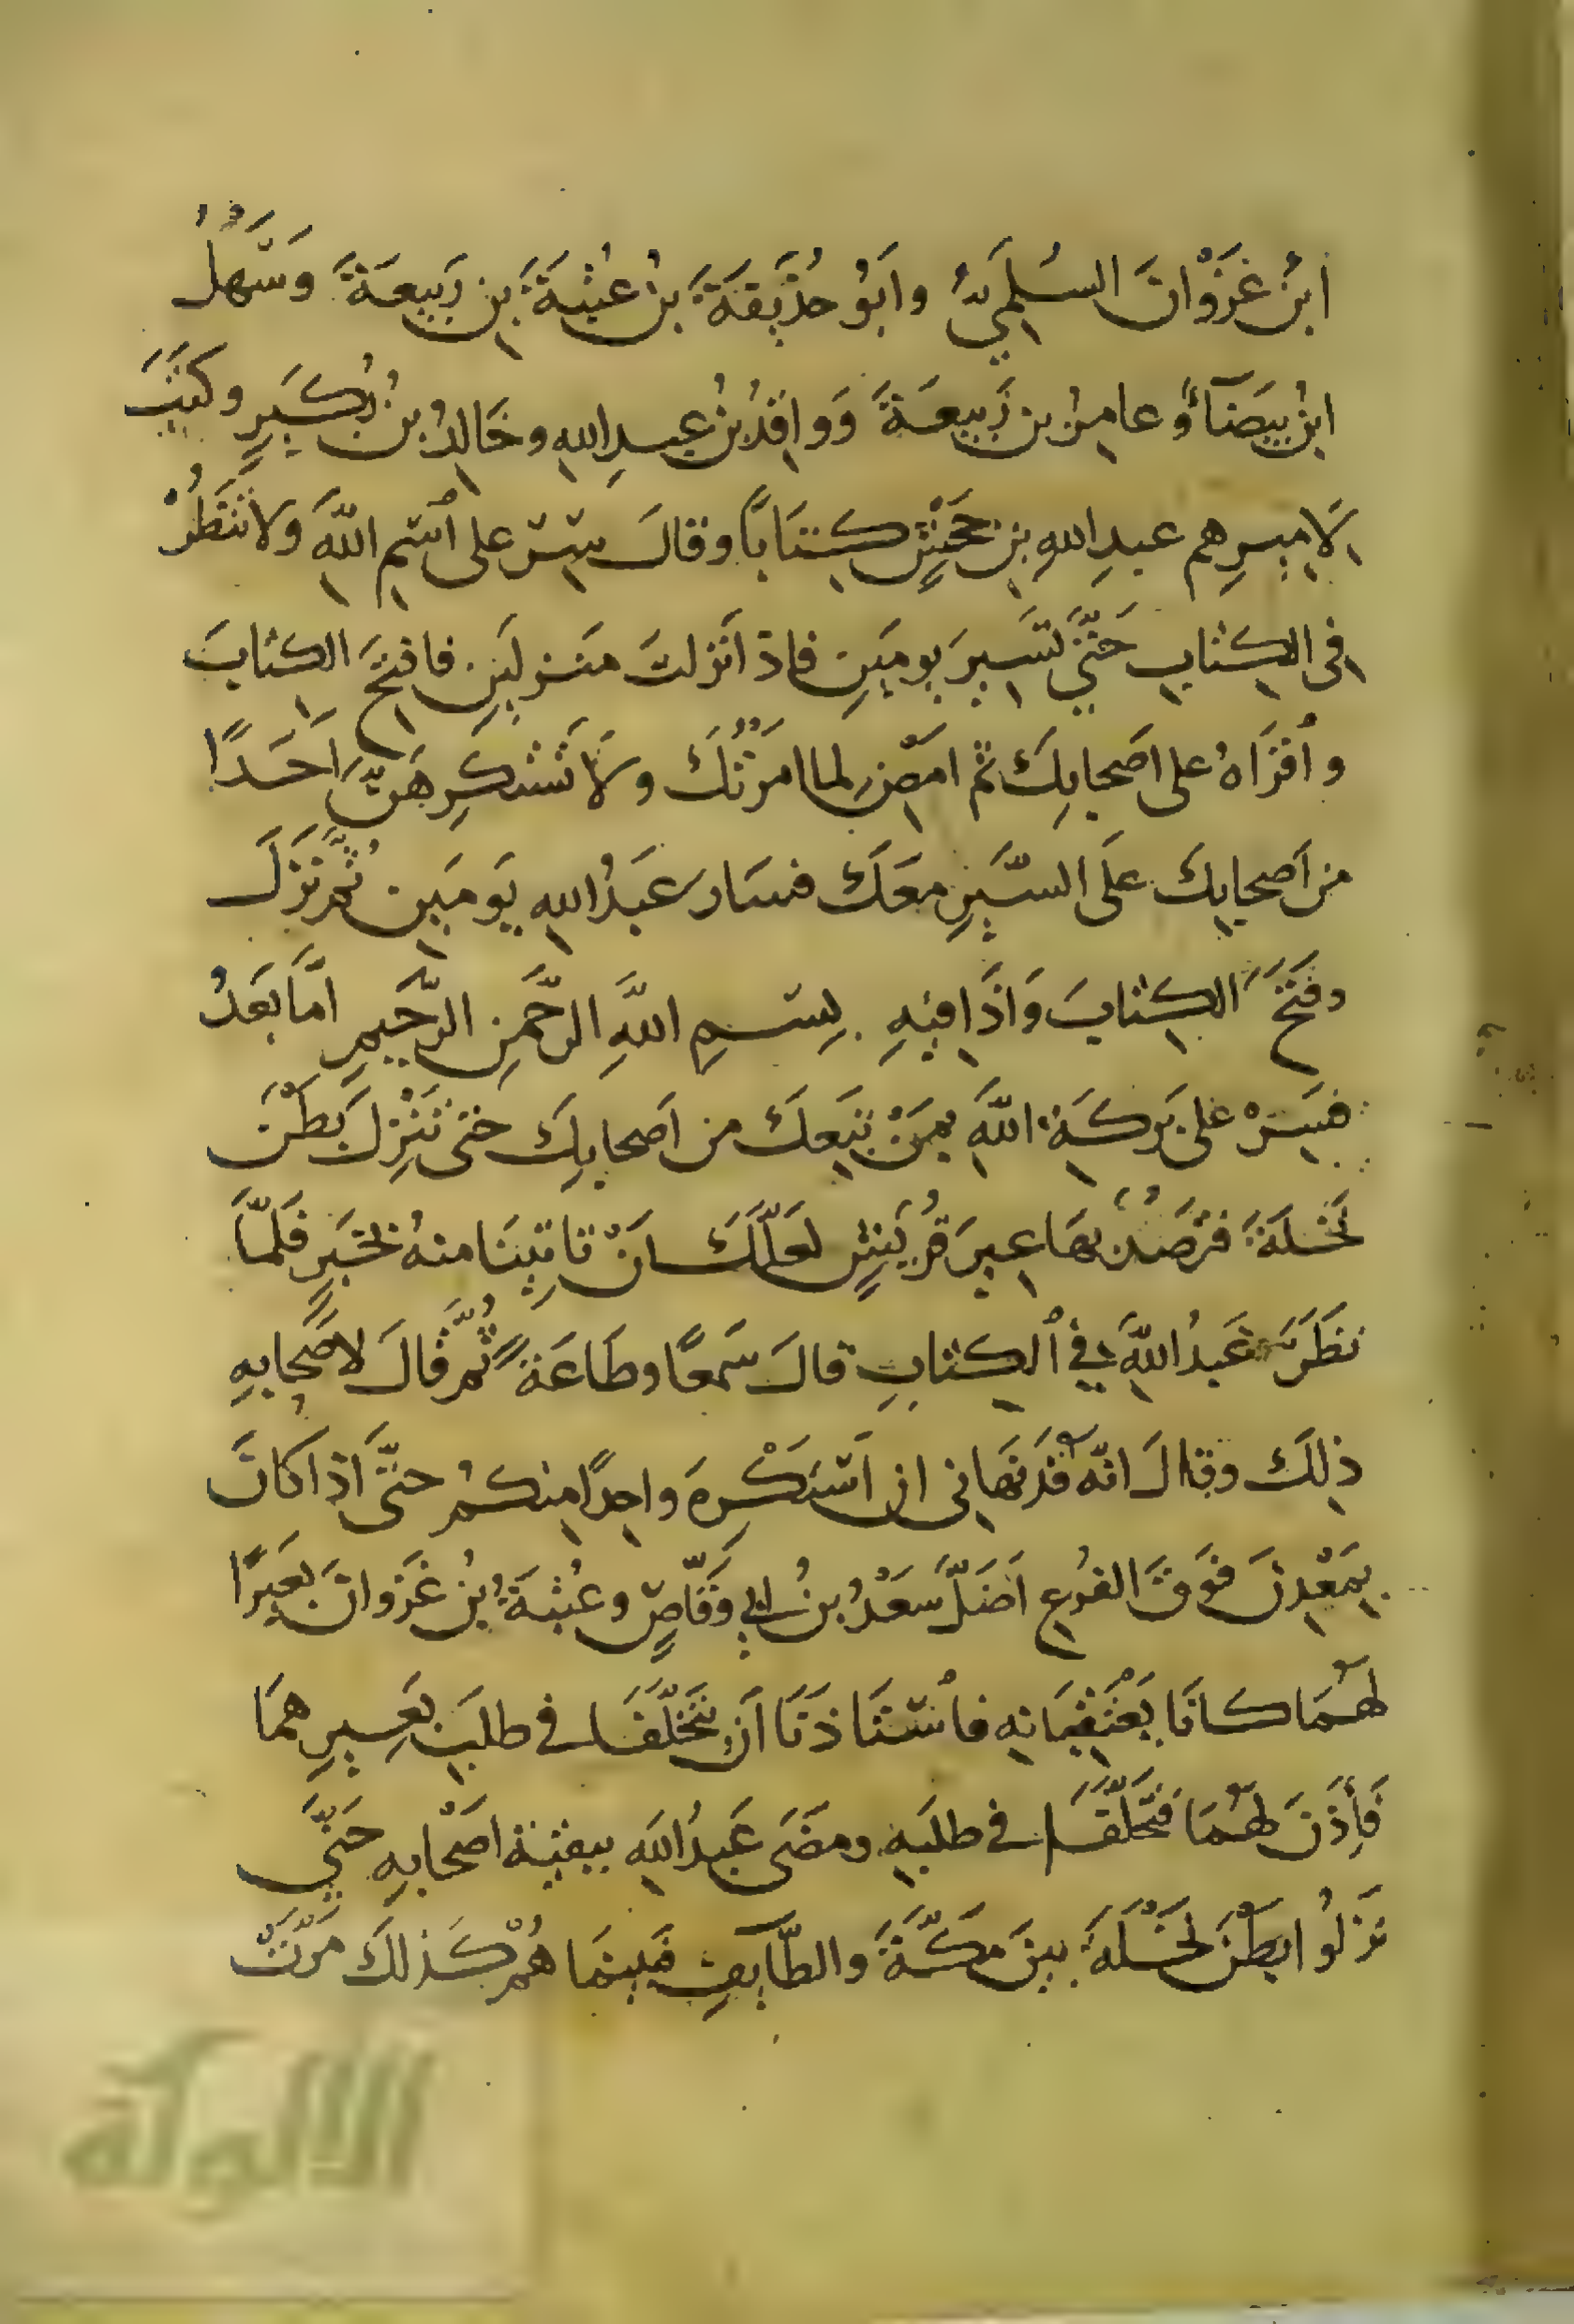 ابْنُ غَزْوَانَ السُلَمِيُّ وَابُو حُذَيفَةَ بنُ عُتْبَةَ بنِ رَبِيعَةَ وَسَهْلُ
ابنُ بيضَآءَ وعامرُ بن رَبِيعَةَ وَواقدُ بنُ عبدِ اللهِ وخَالِدُ بنُ بُكَيرٍ وكتبَ
لاميرِهم عبدِ اللهِ بن جَحْشٍ كتَابًا وقالَ سِرْ على اسْمِ اللهِ ولا تنظُرْ
فى الكتابِ حَتَّى تَسِيرَ يومَينِ فاذا نَزلتَ منزلَينِ فافتحَ الكتابَ
واْقرَاهُ على اصَحابِكَ ثم امضِ لما امرْتُكَ ولَا تَسْتَكرِهَنَّ احَدًا
من اَصحابِكَ علَى السَّيرِ معَكَ فسَار عَبدُ اللهِ يَومَينِ ثُمَّ نزَلَ
وفَتَحَ الكتابَ وَاذَا فيهِ بِسْمِ اللَّهِ الرَّحمنِ الرَّحِيمِ امَّا بَعَدُ
فَسِرْ على بَركَةِ اللهِ بمَنْ تبعَكَ من اَصحابِكَ حتى تَنْزِلَ بَطْنَ
نَخلَةَ فتَرْصُدْ بهَا عيرَ قُرَيشٍ لعَلَّكَ انْ تاتِيَنَا منهُ بخَبَرٍ فَلَمَّا
نظَرَ عَبدُ اللهِ فِي الكتابِ قالَ سَمعًا وطَاعَةً ثُمَّ قالَ لاصَحابهِ
ذلِكَ وقالَ انّه قَدْ نَهانى ان اسْتَكْرِهَ واحِدًا منكمُ حتَّى اذا كانَ
بِمَعْدِنَ فَوقَ الفُرعِ اَضَلَّ سَعْدُ بنُ ابي وَقَّاصٍ وعُتْبَةُ بنُ غَزوانَ بَعِيرًا
لهُمَا كانَا يَعْتَقِبَانهِ فاْستَاذَنَا اَن يتَخَلَّفَا فى طلَبِ بَعِيرِهمَا
فَأَذِنَ لهُمَا فتخَلَّفَا فى طلَبِهِ ومضَى عَبدُ اللهِ ببقيَّةِ اصْحَابهِ حَتَّى
نَزَلُوا بطْنَ نَخْلَةَ بينَ مَكَّةَ والطَّايفِ فبينمَا هُمْ كَذلكَ مَرَّتْ
الالوكة